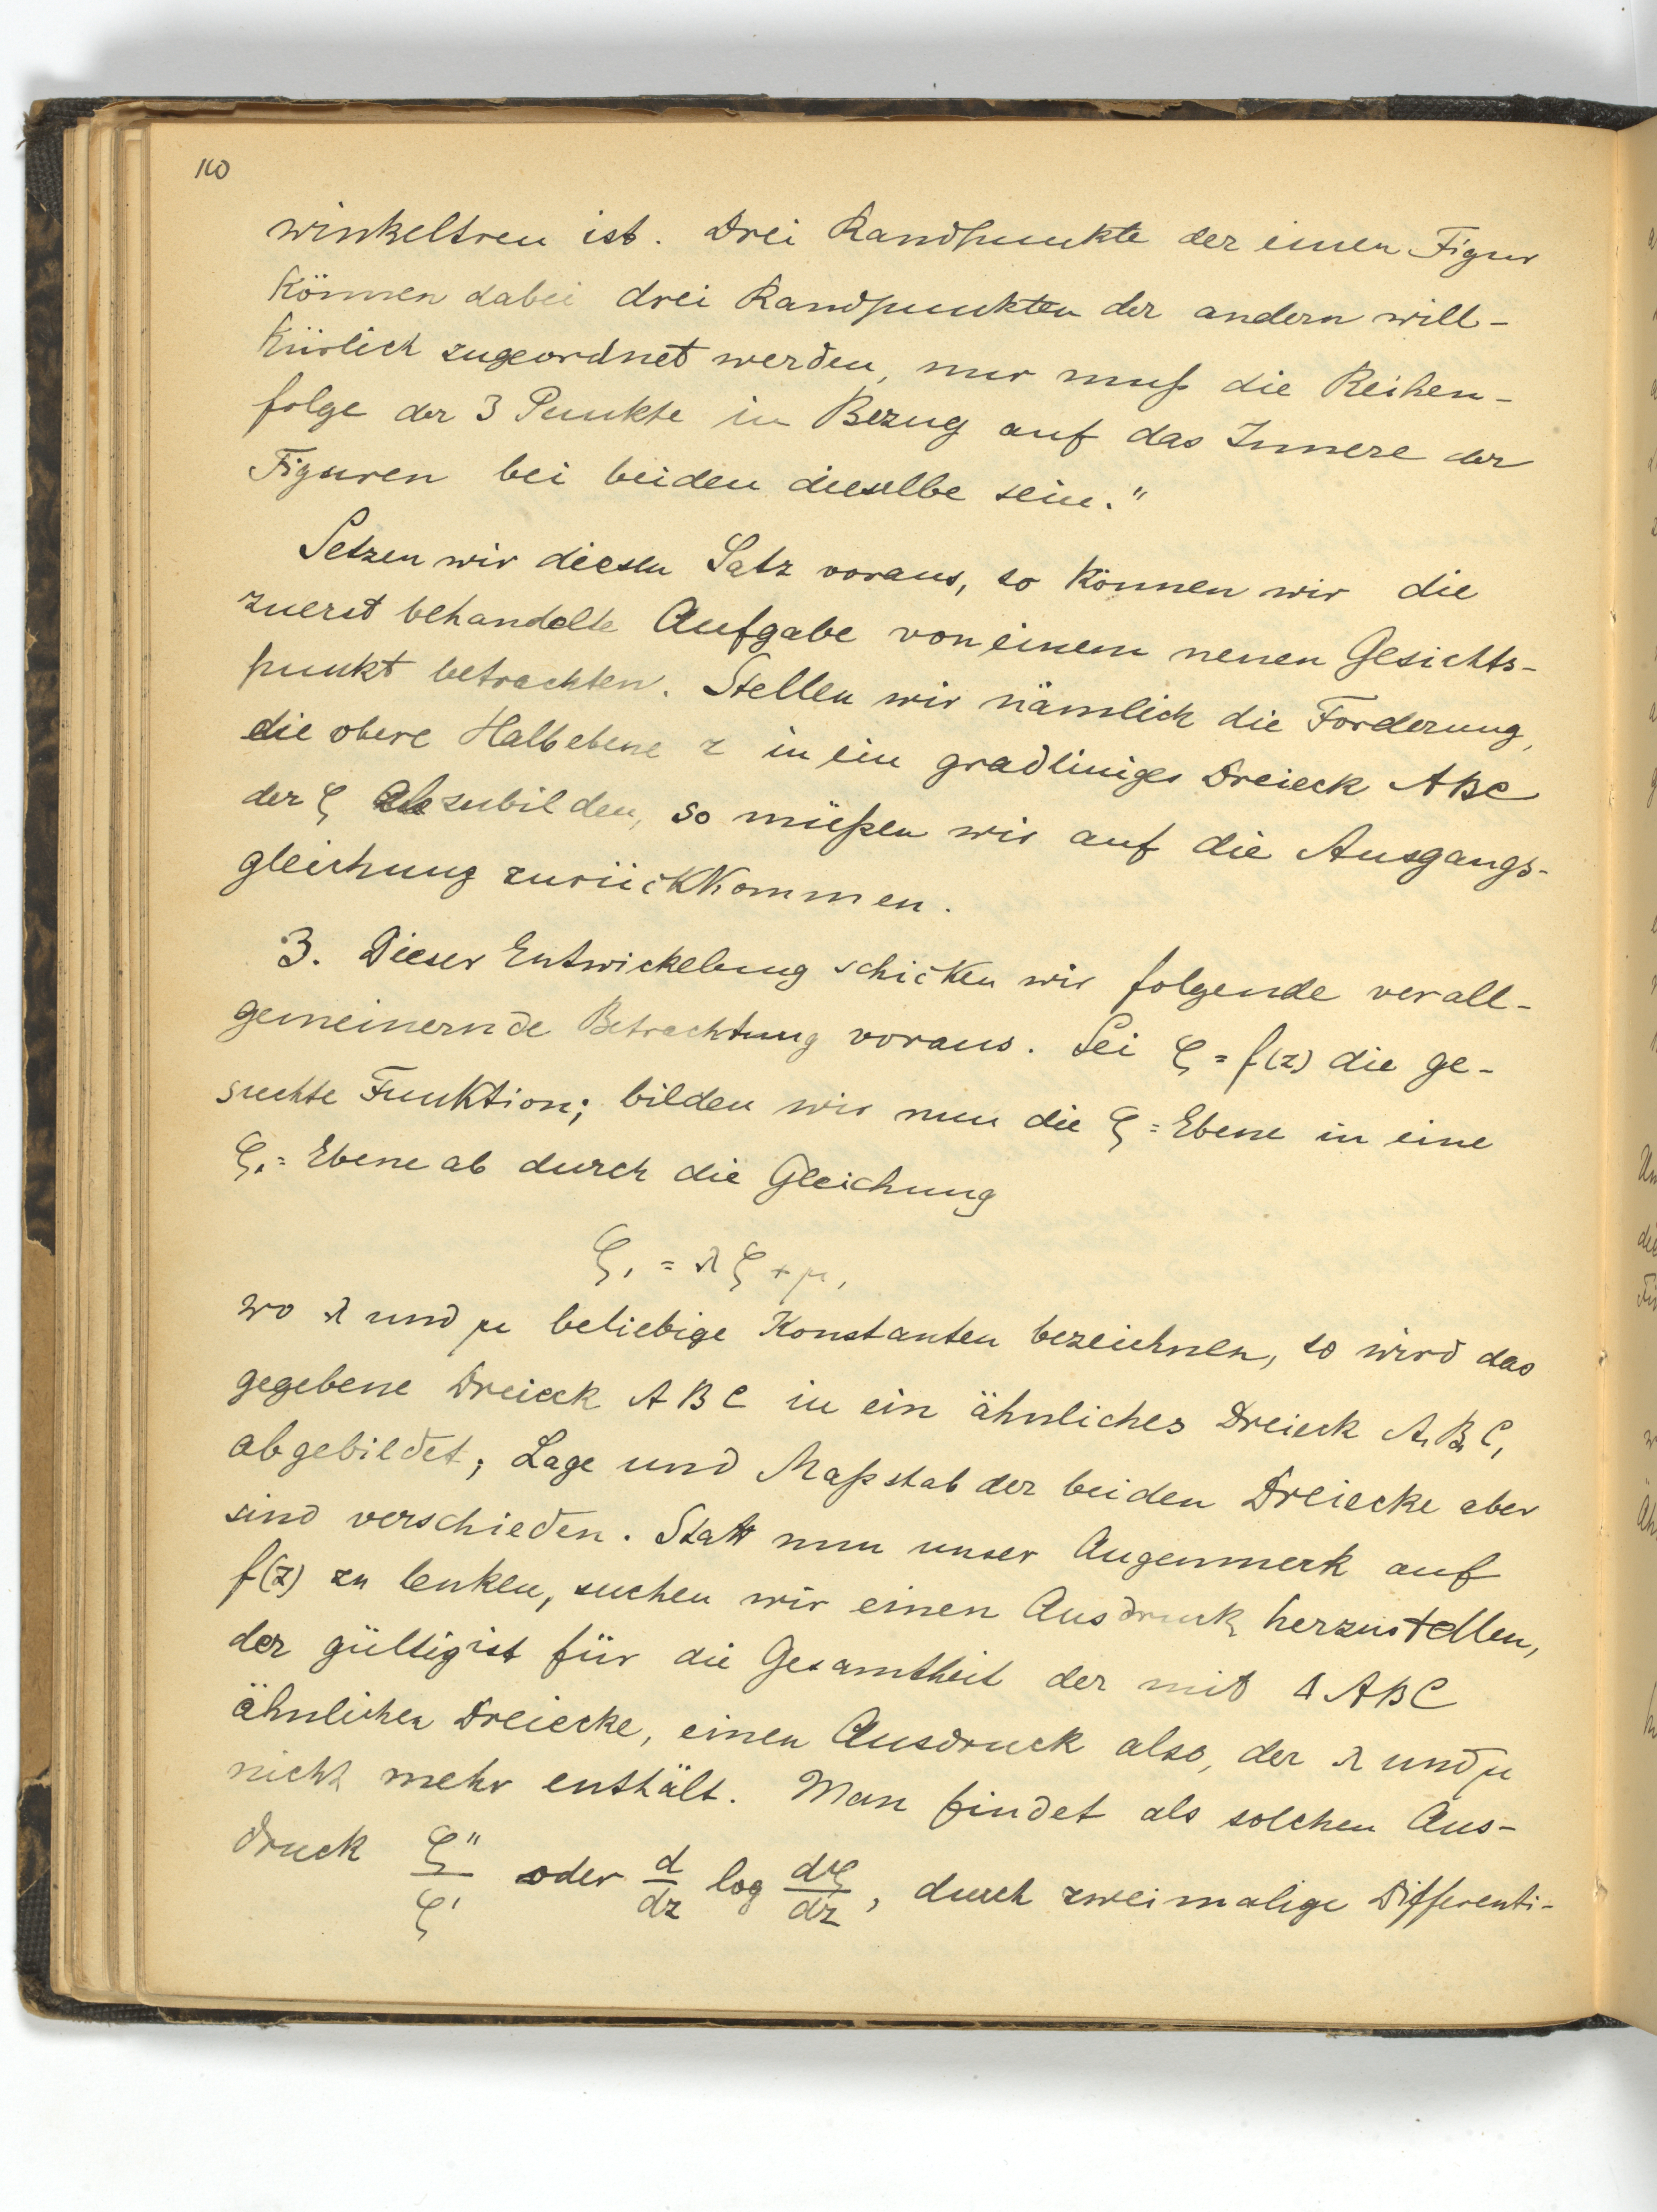 110
winkeltreu ist. Drei Randpunkte der einen Figur
können dabei drei Randpunkten der andern will-
kürlich zugeordnet werden, nur muß die Reihen-
folge der 3 Punkte in Bezug auf das Innere der
Figuren bei beiden dieselbe sein."
Setzen wir diesen Satz voraus, so können wir die
zuerst behandelte Aufgabe von einem neuen Gesichts-
punkt betrachten. Stellen wir nämlich die Forderung,
die obere Halbebene z in ein gradliniges Dreieck ABC
der ζ abzubilden, so müßen wir auf die Ausgangs-
gleichung zurückkommen.
3. Dieser Entwickelung schicken wir folgende verall-
gemeinernde Betrachtung voraus. Sei ζ = f(z) die ge-
suchte Funktion; bilden wir nun die ζ = Ebene in eine
ζ₁ = Ebene ab durch die Gleichung
ζ₁ = λζ + μ,
wo λ und μ beliebige Konstanten bezeichnen, so wird das
gegebene Dreieck ABC in ein ähnliches Dreieck A₁B₁C₁
abgebildet; Lage und Maßstab der beiden Dreiecke aber
sind verschieden. Statt nun unser Augenmerk auf
f(z) zu lenken, suchen wir einen Ausdruck herzustellen,
der gültig ist für die Gesamtheit der mit Δ ABC
ähnlichen Dreiecke, einen Ausdruck also, der λ und μ
nicht mehr enthält. Man findet als solchen Aus-
druck ζ''/ζ' oder d/dz log dζ/dz, durch zweimalige Differenti-